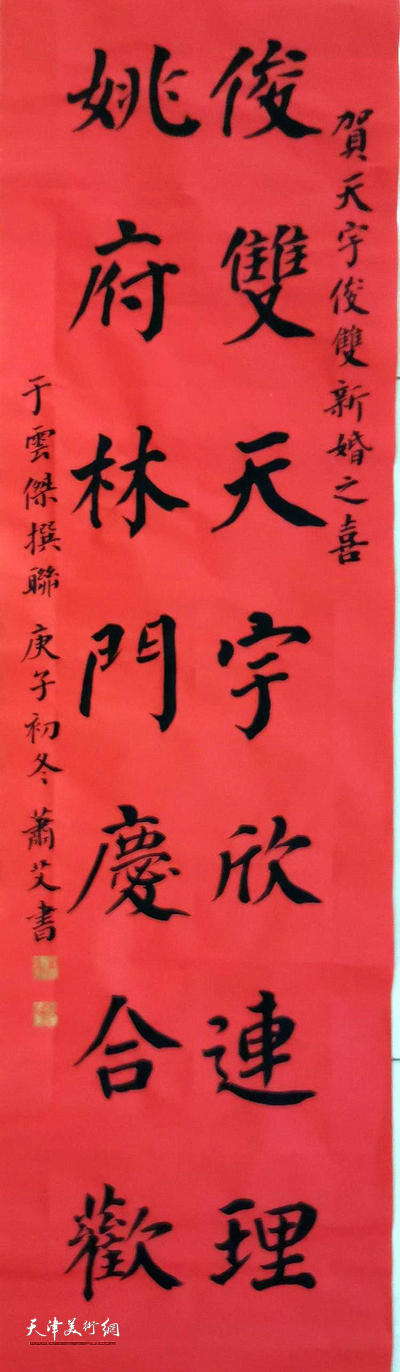 賀天宇俊雙新婚之喜
俊雙天宇欣連理
姚府林門慶合歡
于雲傑撰聯 庚子初冬 蕭艾書
天津美術網